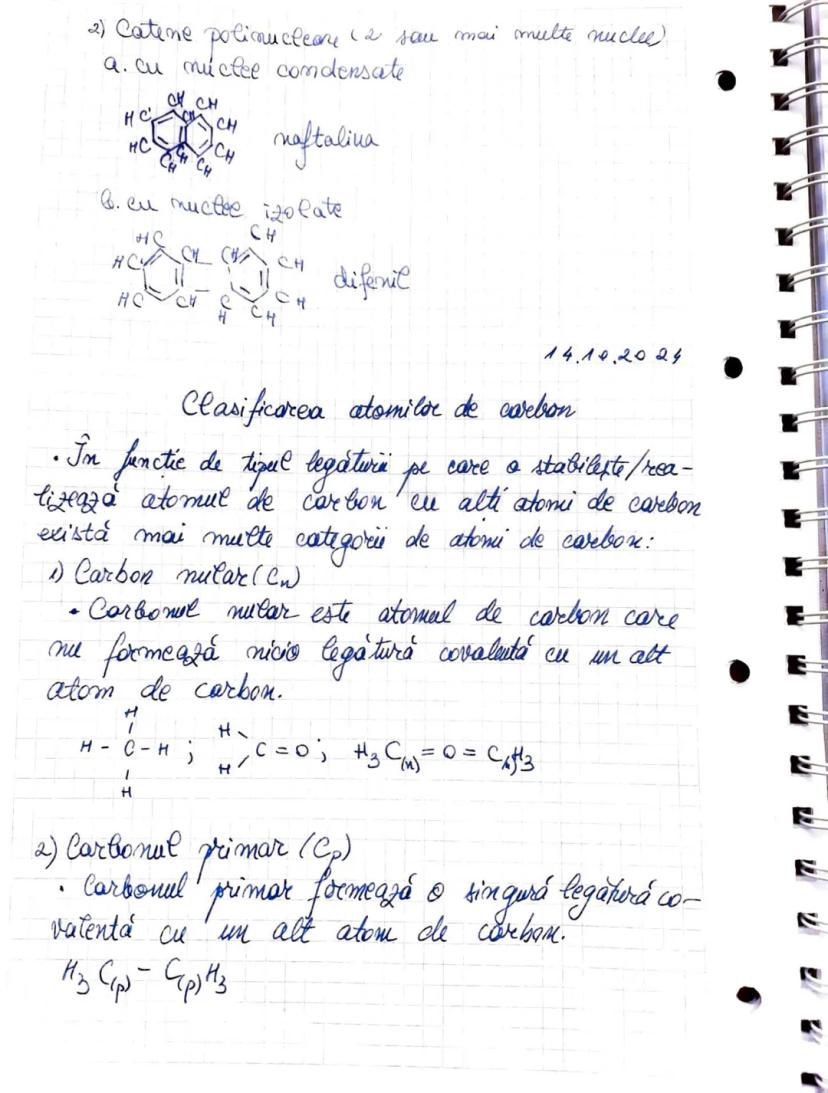 2) Catene polinucleare (2 sau mai multe nuclee)
a. cu nuclee condensate
CH CH
HC CH CH
HC CH CH
CH CH
naftalina
b. cu nuclee izolate
HC CH
HC CH – CH CH
HC CH – CH CH
CH
difenil
14.10.2024
Clasificarea atomilor de carbon
• În funcție de tipul legăturii pe care o stabilește/rea-
lizează atomul de carbon cu alți atomi de carbon
există mai multe categorii de atomi de carbon:
1) Carbon nular (Cn)
• Carbonul nular este atomul de carbon care
nu formează nicio legătură covalentă cu un alt
atom de carbon.
H
H - C - H ; H H C = O ; H3 C(n) = O = C(n)H3
H
2) Carbonul primar (Cp)
• Carbonul primar formează o singură legătură co-
valentă cu un alt atom de carbon.
H3 C(p) – C(p) H3